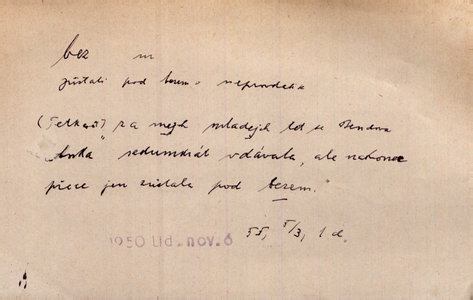 bez m
zůstati pod bezem = neprovdatia
(Tetka) za mejch mladejch let se
„Anka" sedumkrát vdávala, ale nakonec
přece jen zůstala pod bezem."
55, 5/3, 1 d.
1950 Lid. nov. 6